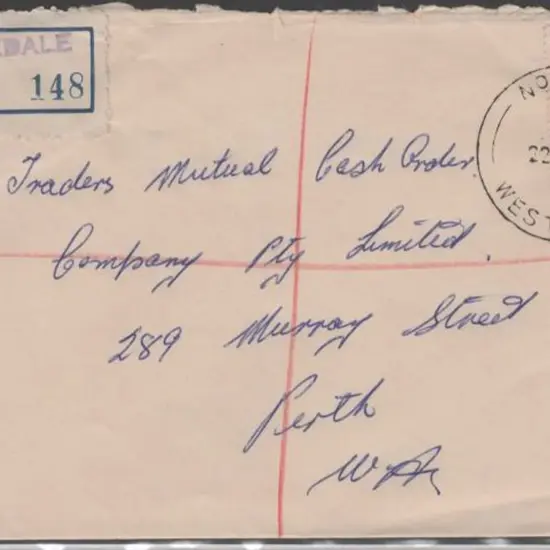 DALE
148
NO
22
WEST
Traders Mutual Cash Order
Company Pty Limited.
289 Murray Street
Perth
W.A.